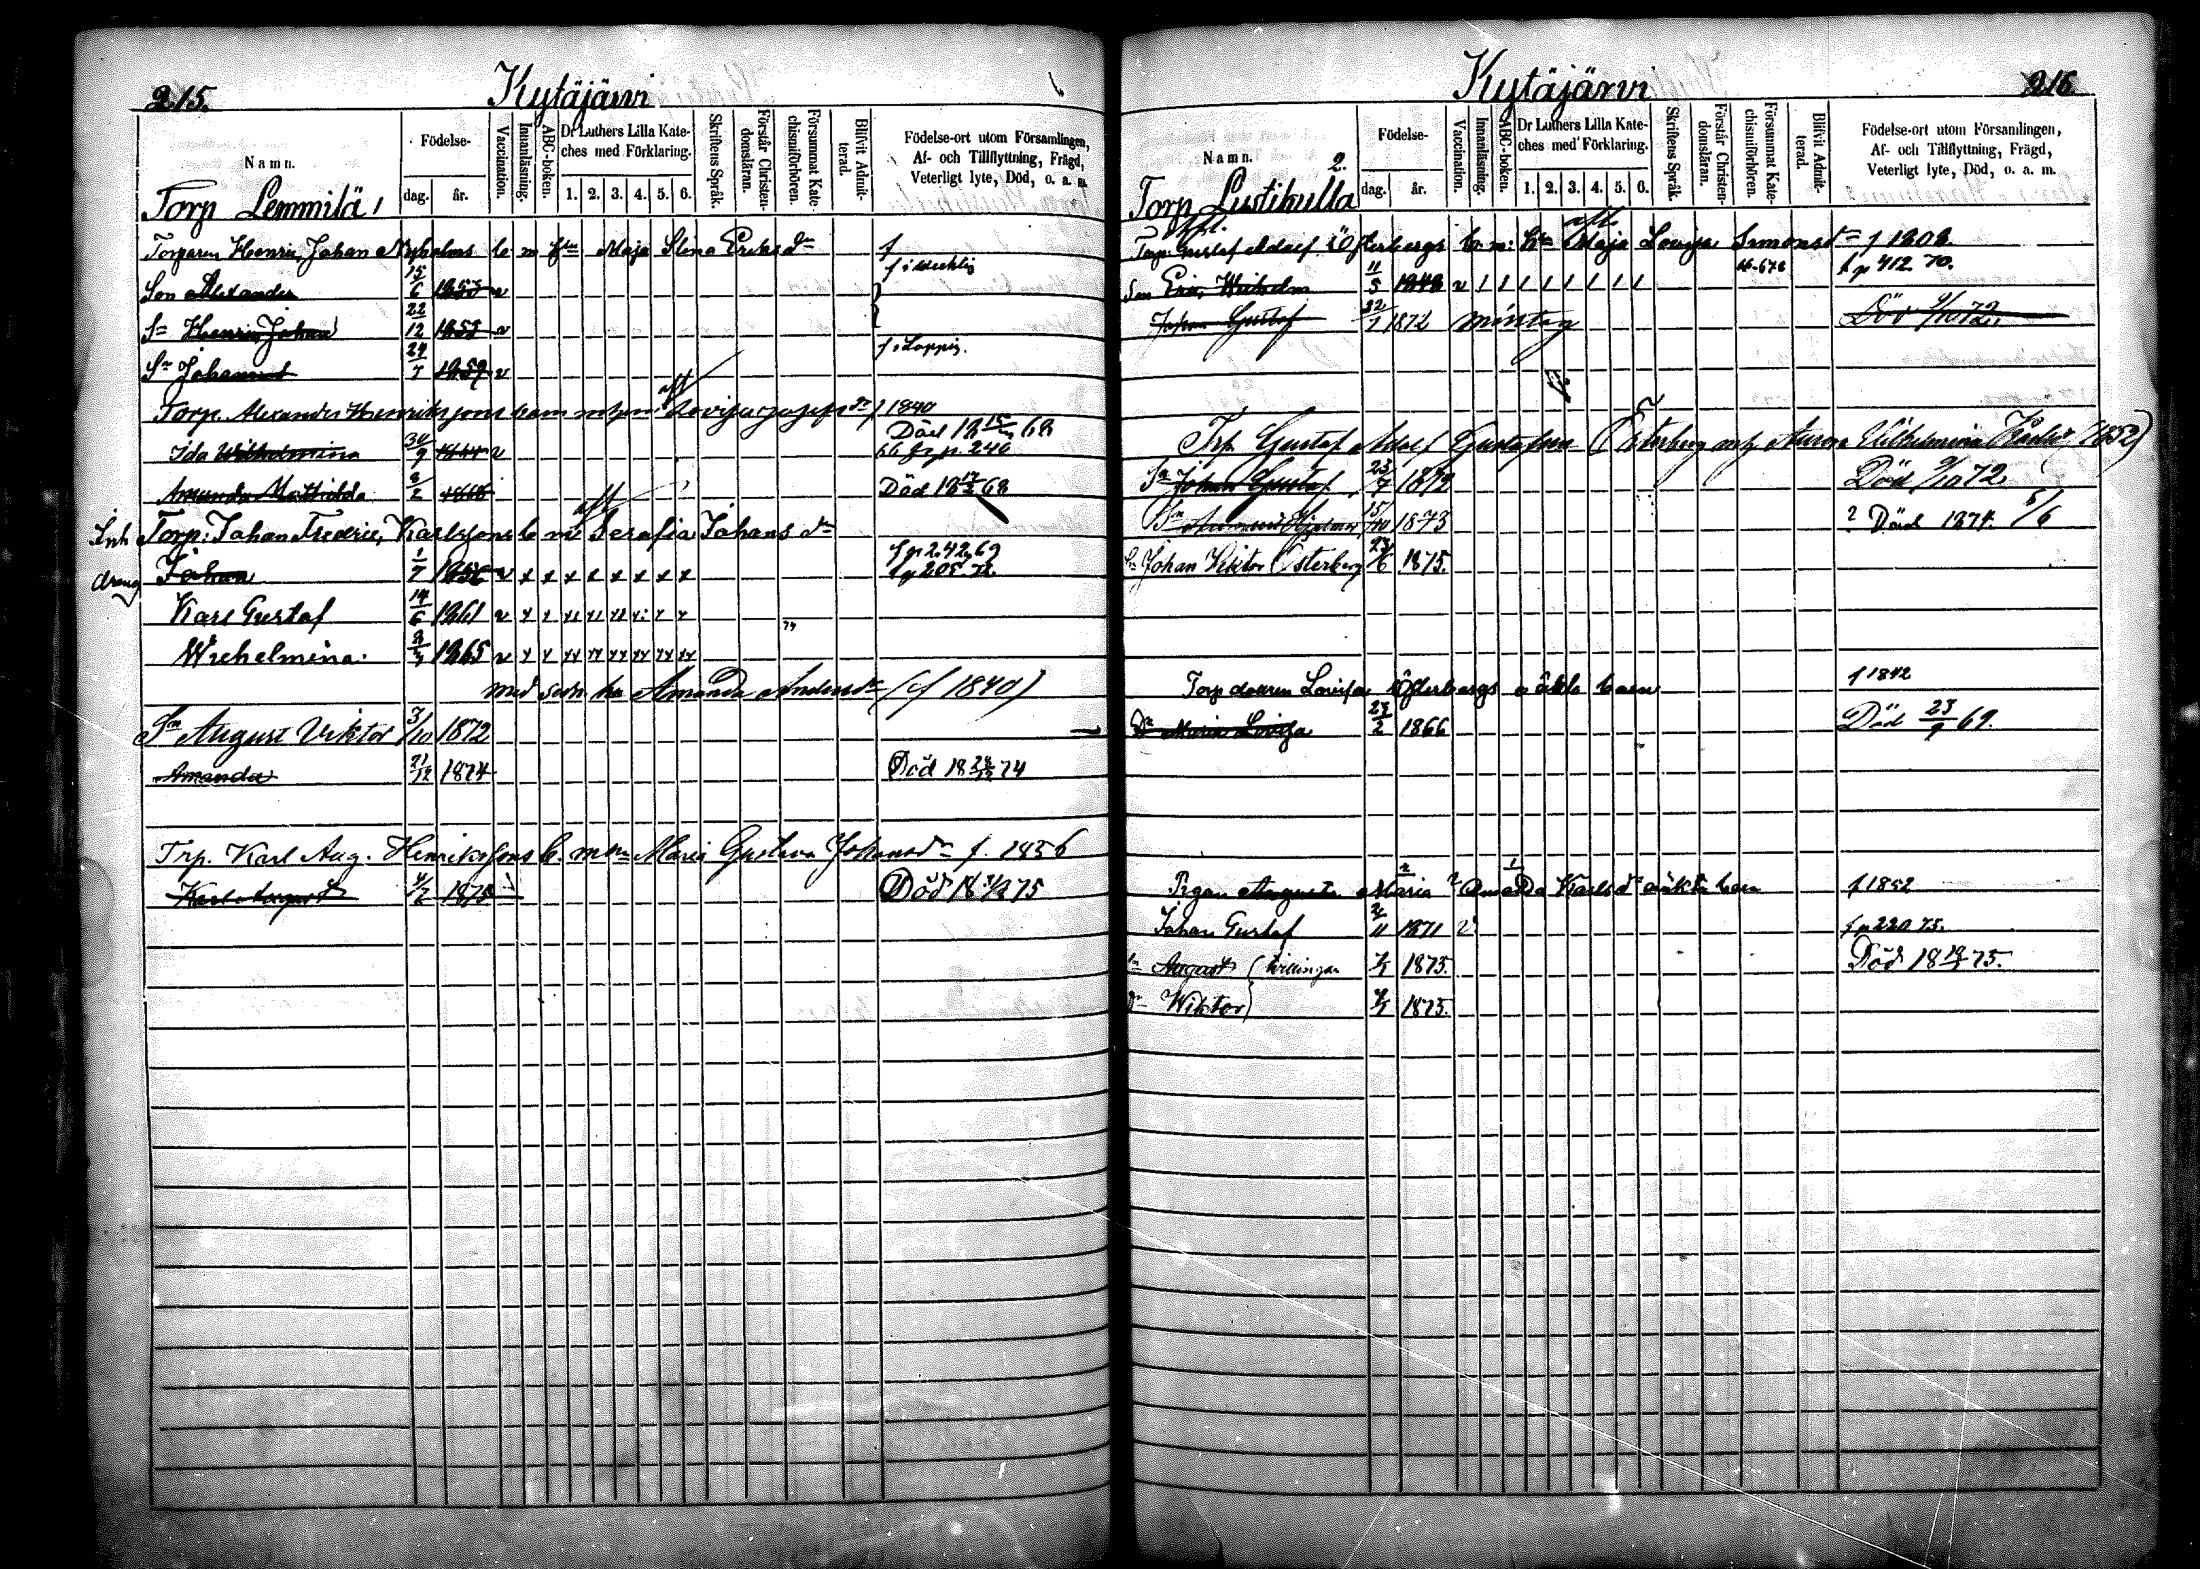 215.
Kytäjärvi
Namn.
Födelse-
dag.
år.
Vaccination.
Innanläsning.
ABC-boken.
Dr Luthers Lilla Kate-
ches med Förklaring.
1. 2. 3. 4. 5. 6.
Skriftens Språk.
Förstår Christen-
domsläran.
Försummat Kate-
chismiförhören.
Blifvit Admit-
terad.
Födelse-ort utom Församlingen,
Af- och Tillflyttning, Frägd,
Veterligt lyte, Död, o. a. m.
Torp Lemmilä 1
Torparen Henric Johan Nyholms b m hu Maja Stina Eriks dr f
Son Alexander 15/6 1853 v
Sn Henric Johan 22/12 1855 v
f i Loppis.
Sn Johannes 24/7 1859 v
Torp. Alexander Henrikssons barn m hu Lovisa Josefs dr f 1840
Död 18 68
Ida Wilhelmina 30/9 v 66 fr p. 246
Amanda Mathilda 8/2 1868 Död 18 68
Inh Torp: Johan Fredric Karlssons b m Serafia Johans dr
f p 242 69
dreng Johan 1/7 1856 v x x x x x x x x f p 205. 72
Karl Gustaf 14/6 1861 v
Wilhelmina 1865 v
med sedn hu Amanda Anders dr (f 1840)
Sn August Viktor 3/10 1872
Amanda 21/12 1874 Död 18 74
Trp. Karl Aug. Henrikssons b. m hu Maria Gustava Johansdr f. 1856
Karl August 1875 Död 18 75
216.
Kytäjärvi
Namn.
Födelse-
dag.
år.
Vaccination.
Innanläsning.
ABC-boken.
Dr Luthers Lilla Kate-
ches med Förklaring.
1. 2. 3. 4. 5. 6.
Skriftens Språk.
Förstår Christen-
domsläran.
Försummat Kate-
chismiförhören.
Blifvit Admit-
terad.
Födelse-ort utom Församlingen,
Af- och Tillflyttning, Frägd,
Veterligt lyte, Död, o. a. m.
2.
Torp Lustikulla
Torp. Gustaf Adolf Österbergs b. m: hu Maja Lovisa Simons dr f 1808.
Son Eric Wilhelm 11/5 1848 v 1 1 1 1 1 1 1 1 f p 412 70.
Johan Gustaf 1872 Död 9/10 72.
Trp. Gustaf Adolf Gustafsson Österberg m h Aurora Vilhelmina (1852)
Sn Johan Gustaf 23/7 1872 Död 9/10 72.
Sn Hjalmar 15/10 1873 2 Död 1874. 5/6
Sn Johan Viktor Österberg 23/6 1875.
Torp dottren Lovisa Österbergs oäkta barn f 1842
Dr Maria Lovisa 23/2 1866 Död 23/9 69.
Pigan Augusta Maria Amanda Karls dr oäkta barn f 1852
Johan Gustaf 1871 v f p 220 75.
Sn August (tvillingar 1875. Död 18 75.
Wiktor 1875.